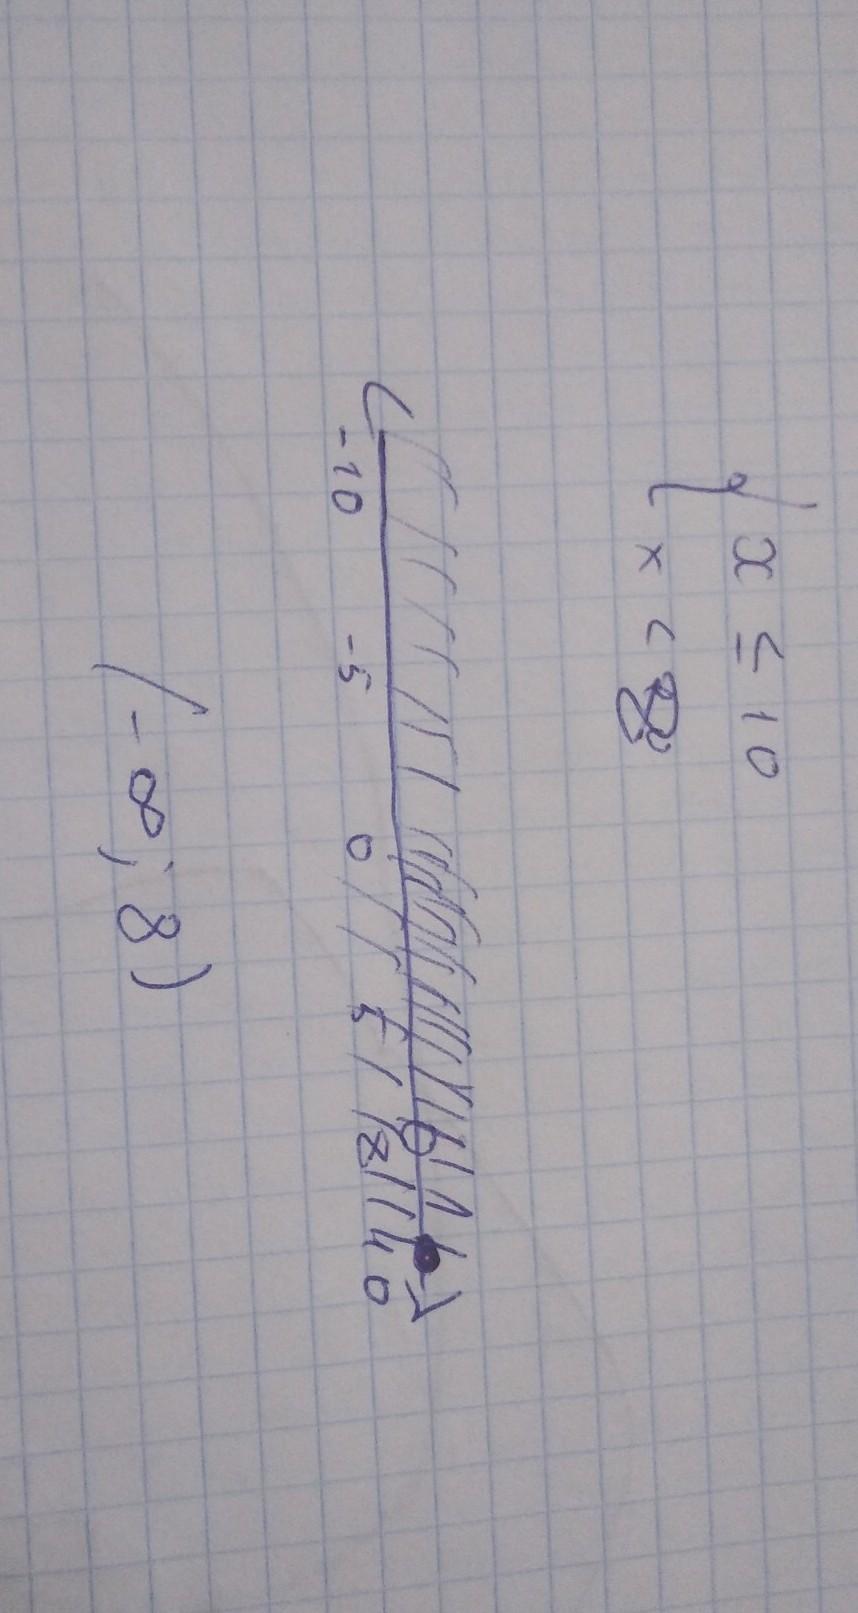 { x ≤ 10
x < 8
-10 -5 0 5 8 10
(-∞; 8)